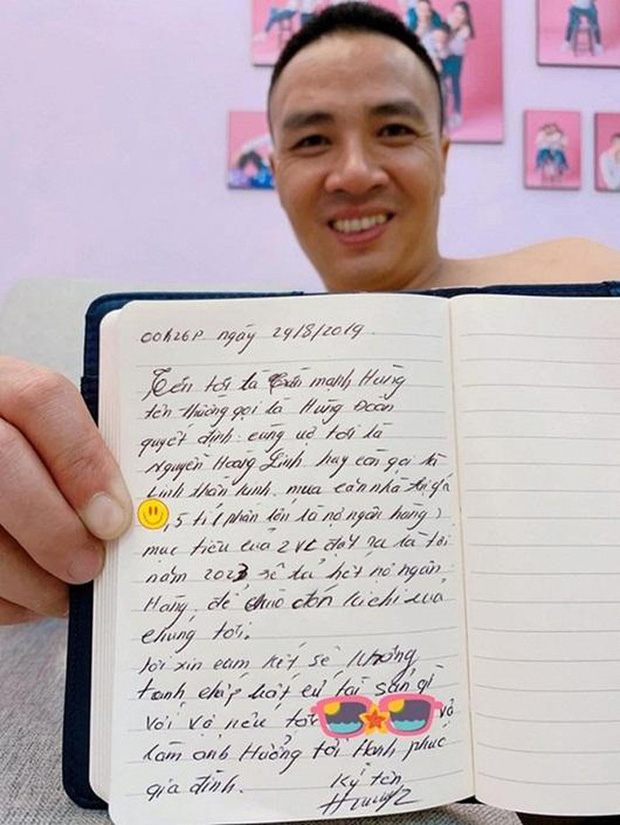 00h26p ngày 29/8/2019
Tên tôi là Trần mạnh Hùng
tên thường gọi là Hùng Đoàn
quyết định cùng vợ tôi là
Nguyễn Hoàng Linh hay còn gọi là
Linh thần kinh. mua căn nhà trị giá
,5 tỉ (phần lớn là nợ ngân hàng)
mục tiêu của 2 VC đặt ra là tới
năm 2023 sẽ trả hết nợ ngân
Hàng để chào đón Kichi của
chúng tôi.
tôi xin cam kết sẽ không
tranh chấp bất cứ tài sản gì
với vợ nếu tôi và
làm ảnh Hưởng tới Hạnh phúc
gia đình.
Ký tên